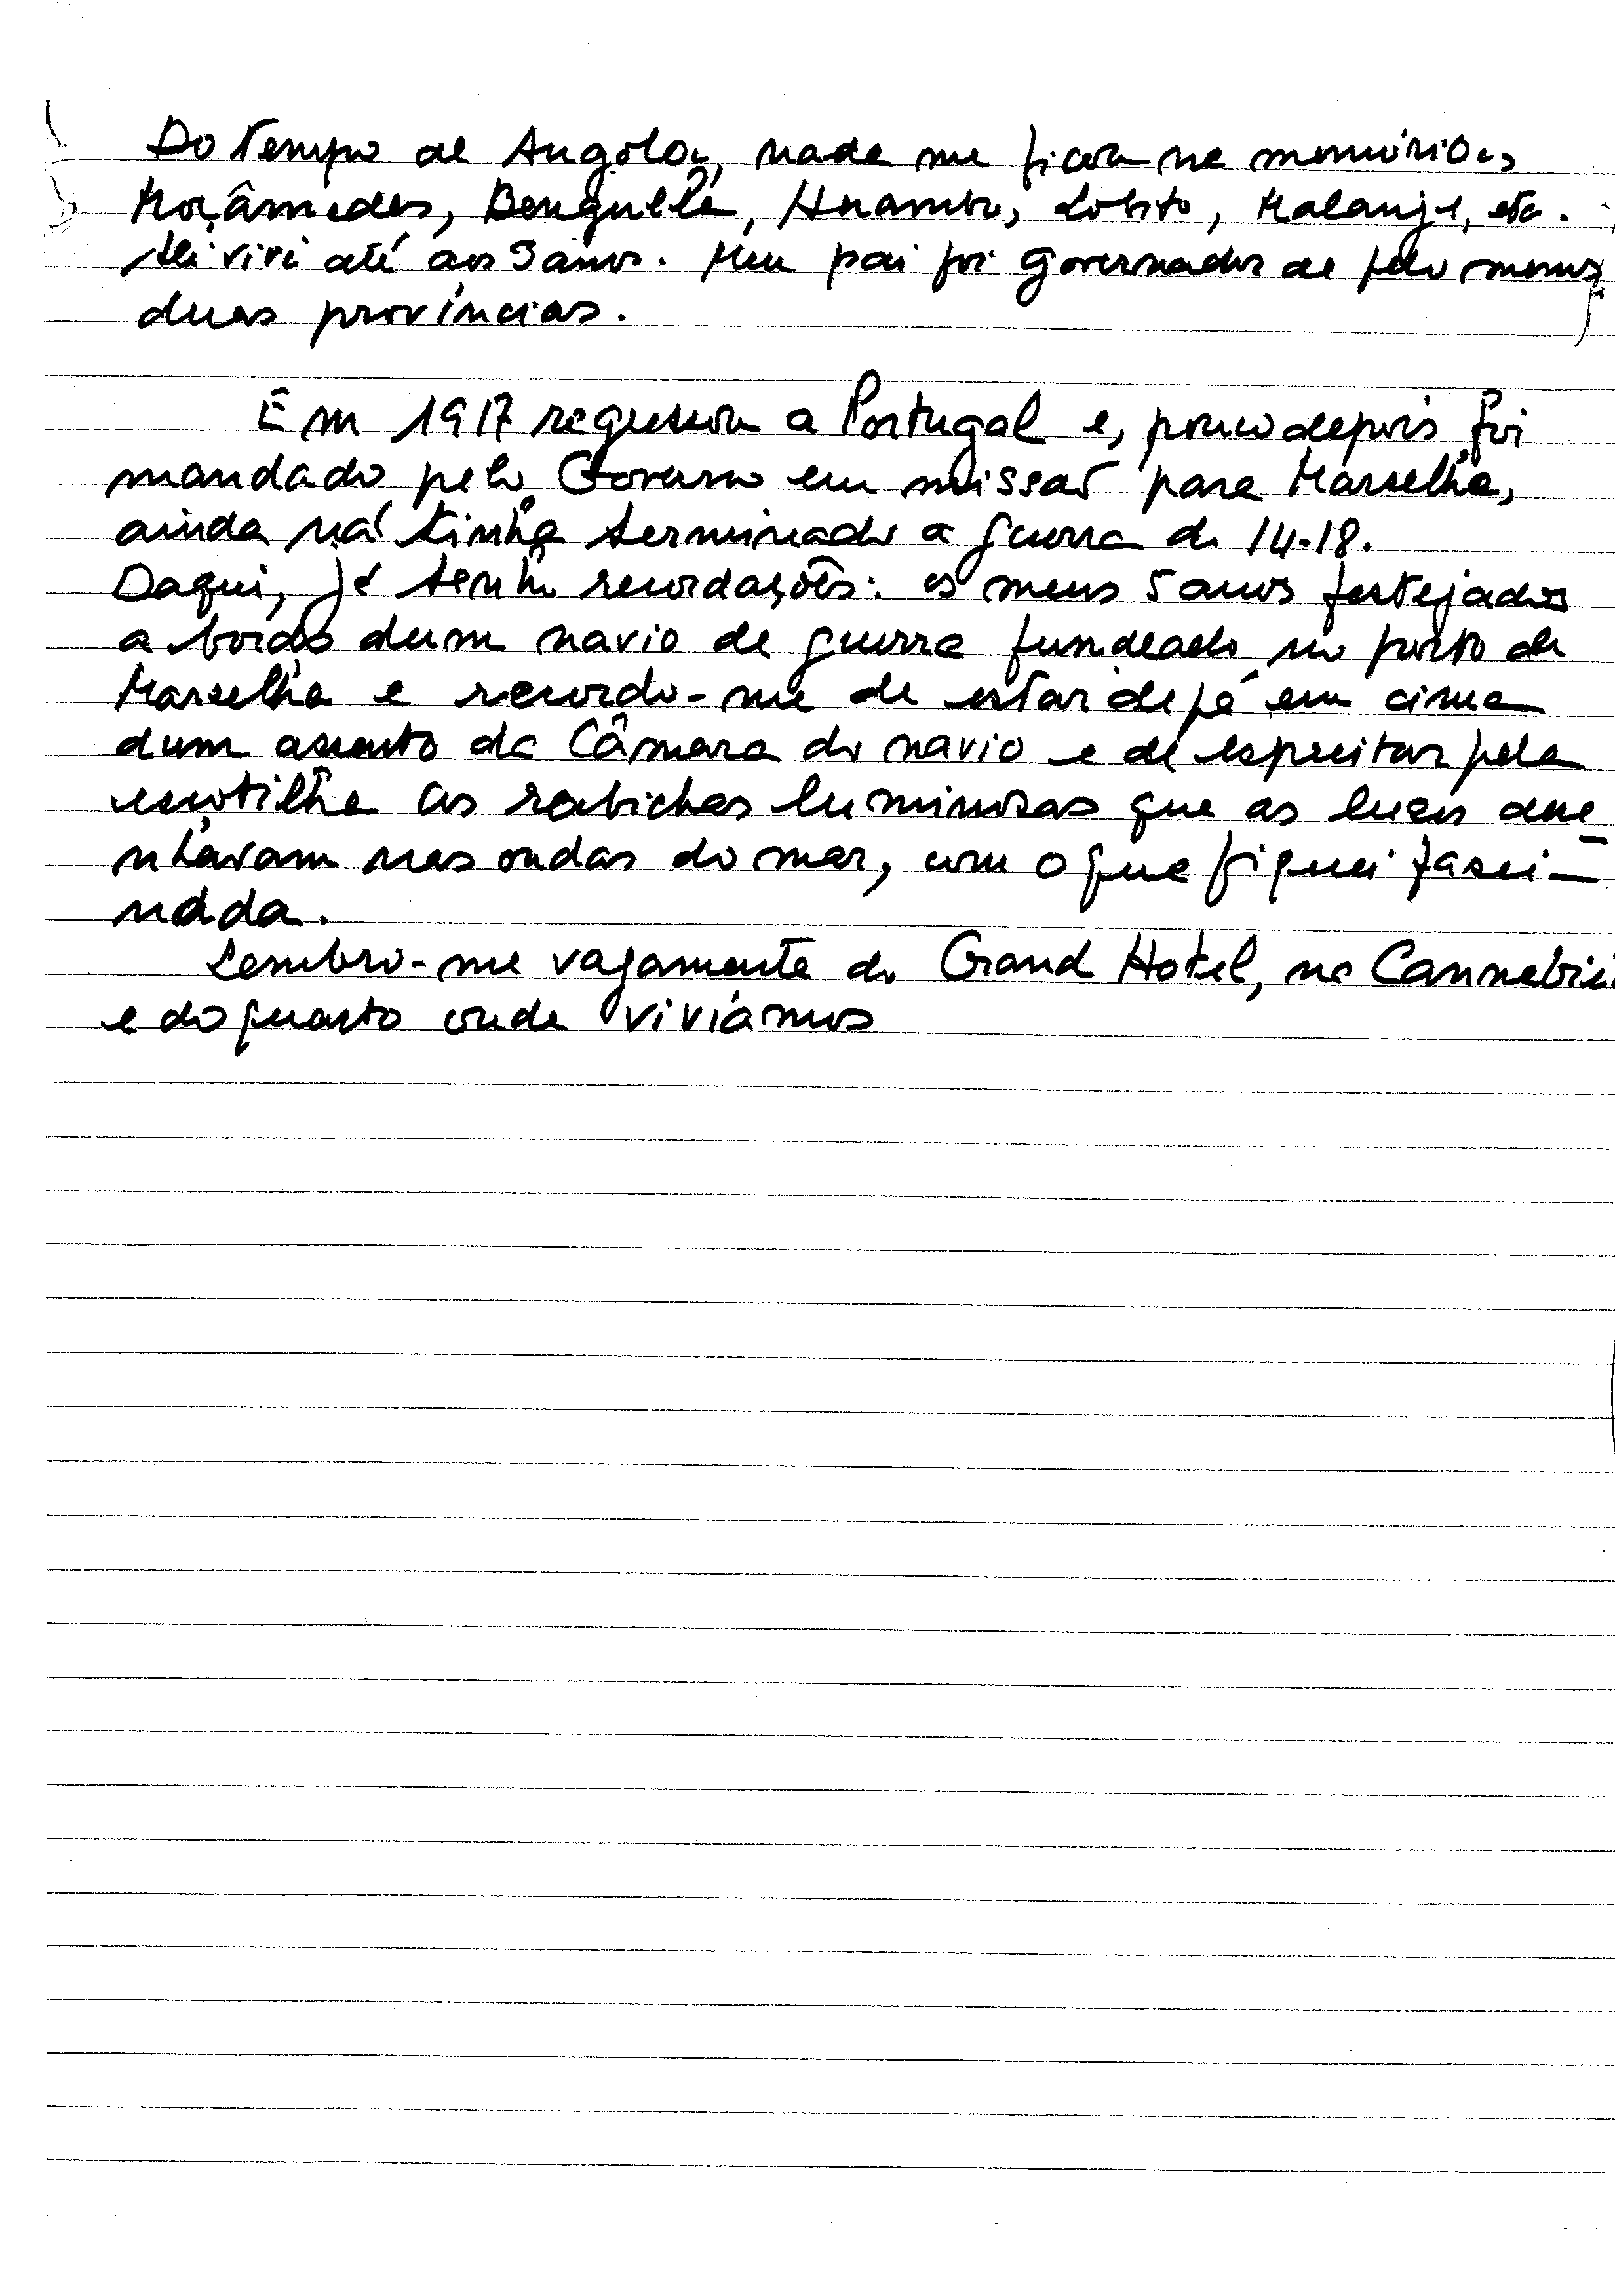 Do tempo de Angola, nada me ficou na memória,
Moçâmedes, Benguella, Huambo, Lobito, Malanje, etc.
Ali vivi até aos 3 anos. Meu pai foi governador de pelo menos
duas províncias.
Em 1917 regressou a Portugal e, pouco depois foi
mandado pelo Governo em missão para Marselha,
ainda não tinha terminado a guerra de 14-18.
Daqui, já tenho recordações: os meus 5 anos festejados
a bordo dum navio de guerra fundeado no porto de
Marselha e recordo-me de estar de pé em cima
dum assento da Câmara do navio e de espreitar pela
escotilha as rabichas luminosas que as luzes
nas ondas do mar, com o que fiquei fasci-
nada.
Lembro-me vagamente do Grand Hotel, na Cannebiè
e do quarto onde viviámos